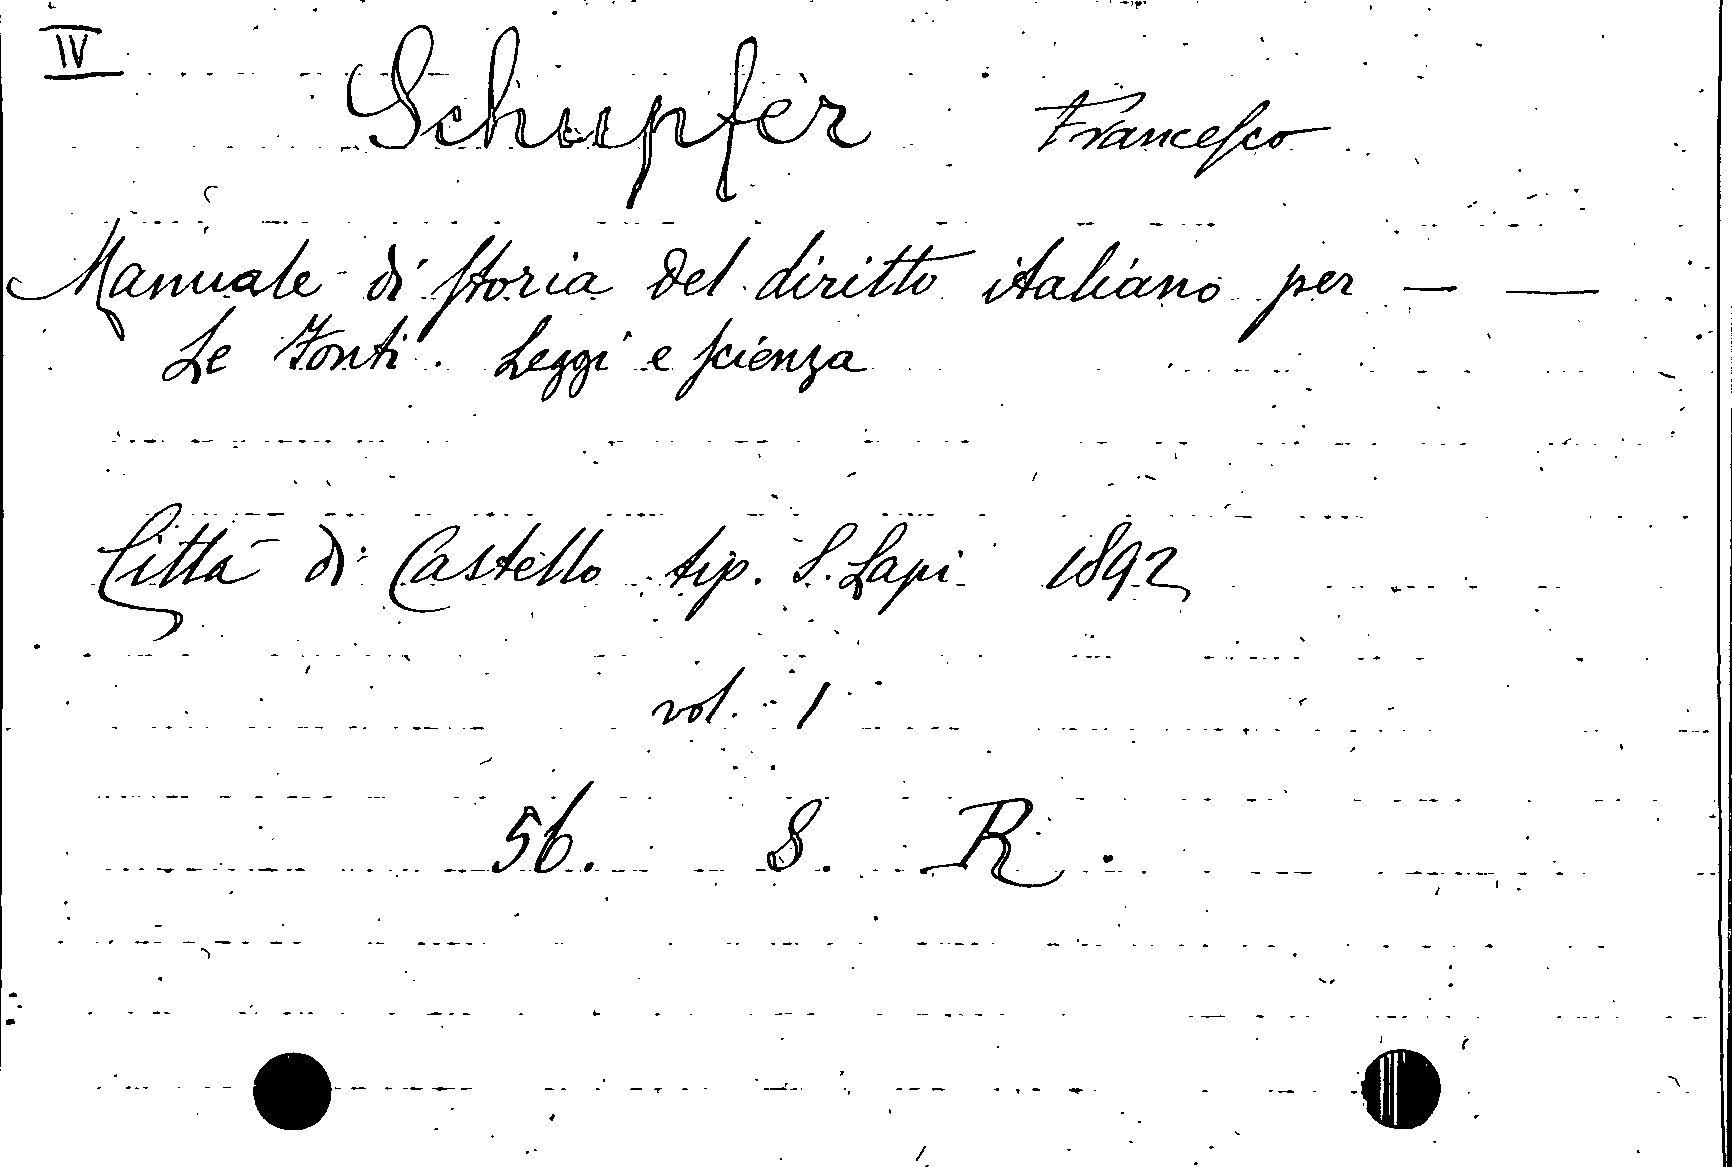 IV
Schupfer Francesco
Manuale di storia del diritto italiano per — —
Le Fonti. Leggi e scienza
Città di Castello tip. S. Lapi 1892
vol. 1
56. 8. R.